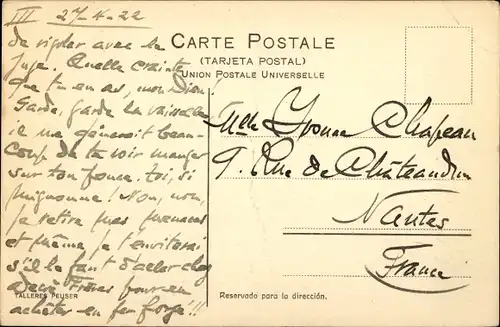 III 27-4-22
de rigoler avec le
juge. Quelle crainte
que tu en as, mon Dieu!
Garde, garde la vaisselle
il me gênerait beau-
coup de te voir manger
sur ton pouce. toi, si
mignonne! Non, non,
je retire mes menaces
et même je t'inviterai
s'il le faut d'aller chez
deux Frères pour en
acheter en fer forgé!!!
CARTE POSTALE
(TARJETA POSTAL)
UNION POSTALE UNIVERSELLE
Mlle Yvonne Chapeau
9. Rue de Châteaudun
Nantes
France
TALLERES PEUSER
Reservado para la dirección.